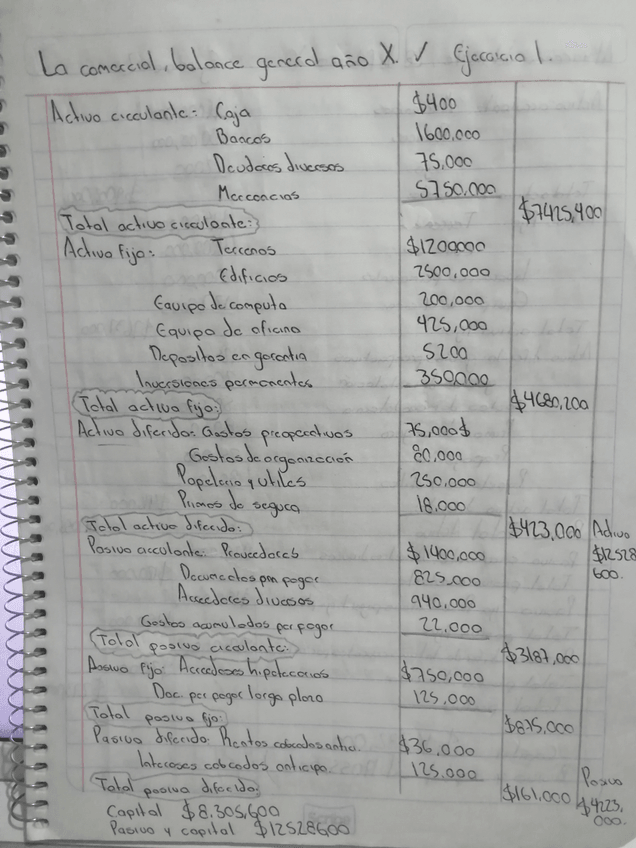 La comercial, balance general año X. ✓ Ejercicio 1.
Activo circulante: Caja $400
Bancos 1600,000
Deudores diversos 75,000
Mercancias 5750,000
Total activo circulante: $7425,400
Activo fijo: Terrenos $1200000
Edificios 2500,000
Equipo de computo 200,000
Equipo de oficina 425,000
Depositos en garantia 5200
Inversiones permanentes 350000
Total activo fijo: $4680,200
Activo diferido: Gastos preoperativos 75,000$
Gastos de organización 80,000
Papeleria y utiles 250,000
Primas de seguro 18,000
Total activo diferido: $423,000 Activo $12528 600.
Pasivo circulante: Proveedores $1400,000
Documentos por pagar 825,000
Acreedores diversos 940,000
Gastos acumulados por pagar 22,000
Total pasivo circulante: $3187,000
Pasivo fijo: Acreedores hipotecarios $750,000
Doc. por pagar largo plazo 125,000
Total pasivo fijo: $875,000
Pasivo diferido: Rentas cobradas antic. $36,000
Intereses cobrados anticipo. 125,000
Total pasivo diferido: $161,000 Pasivo $4223,000.
Capital $8,305,600
Pasivo y capital $12528600